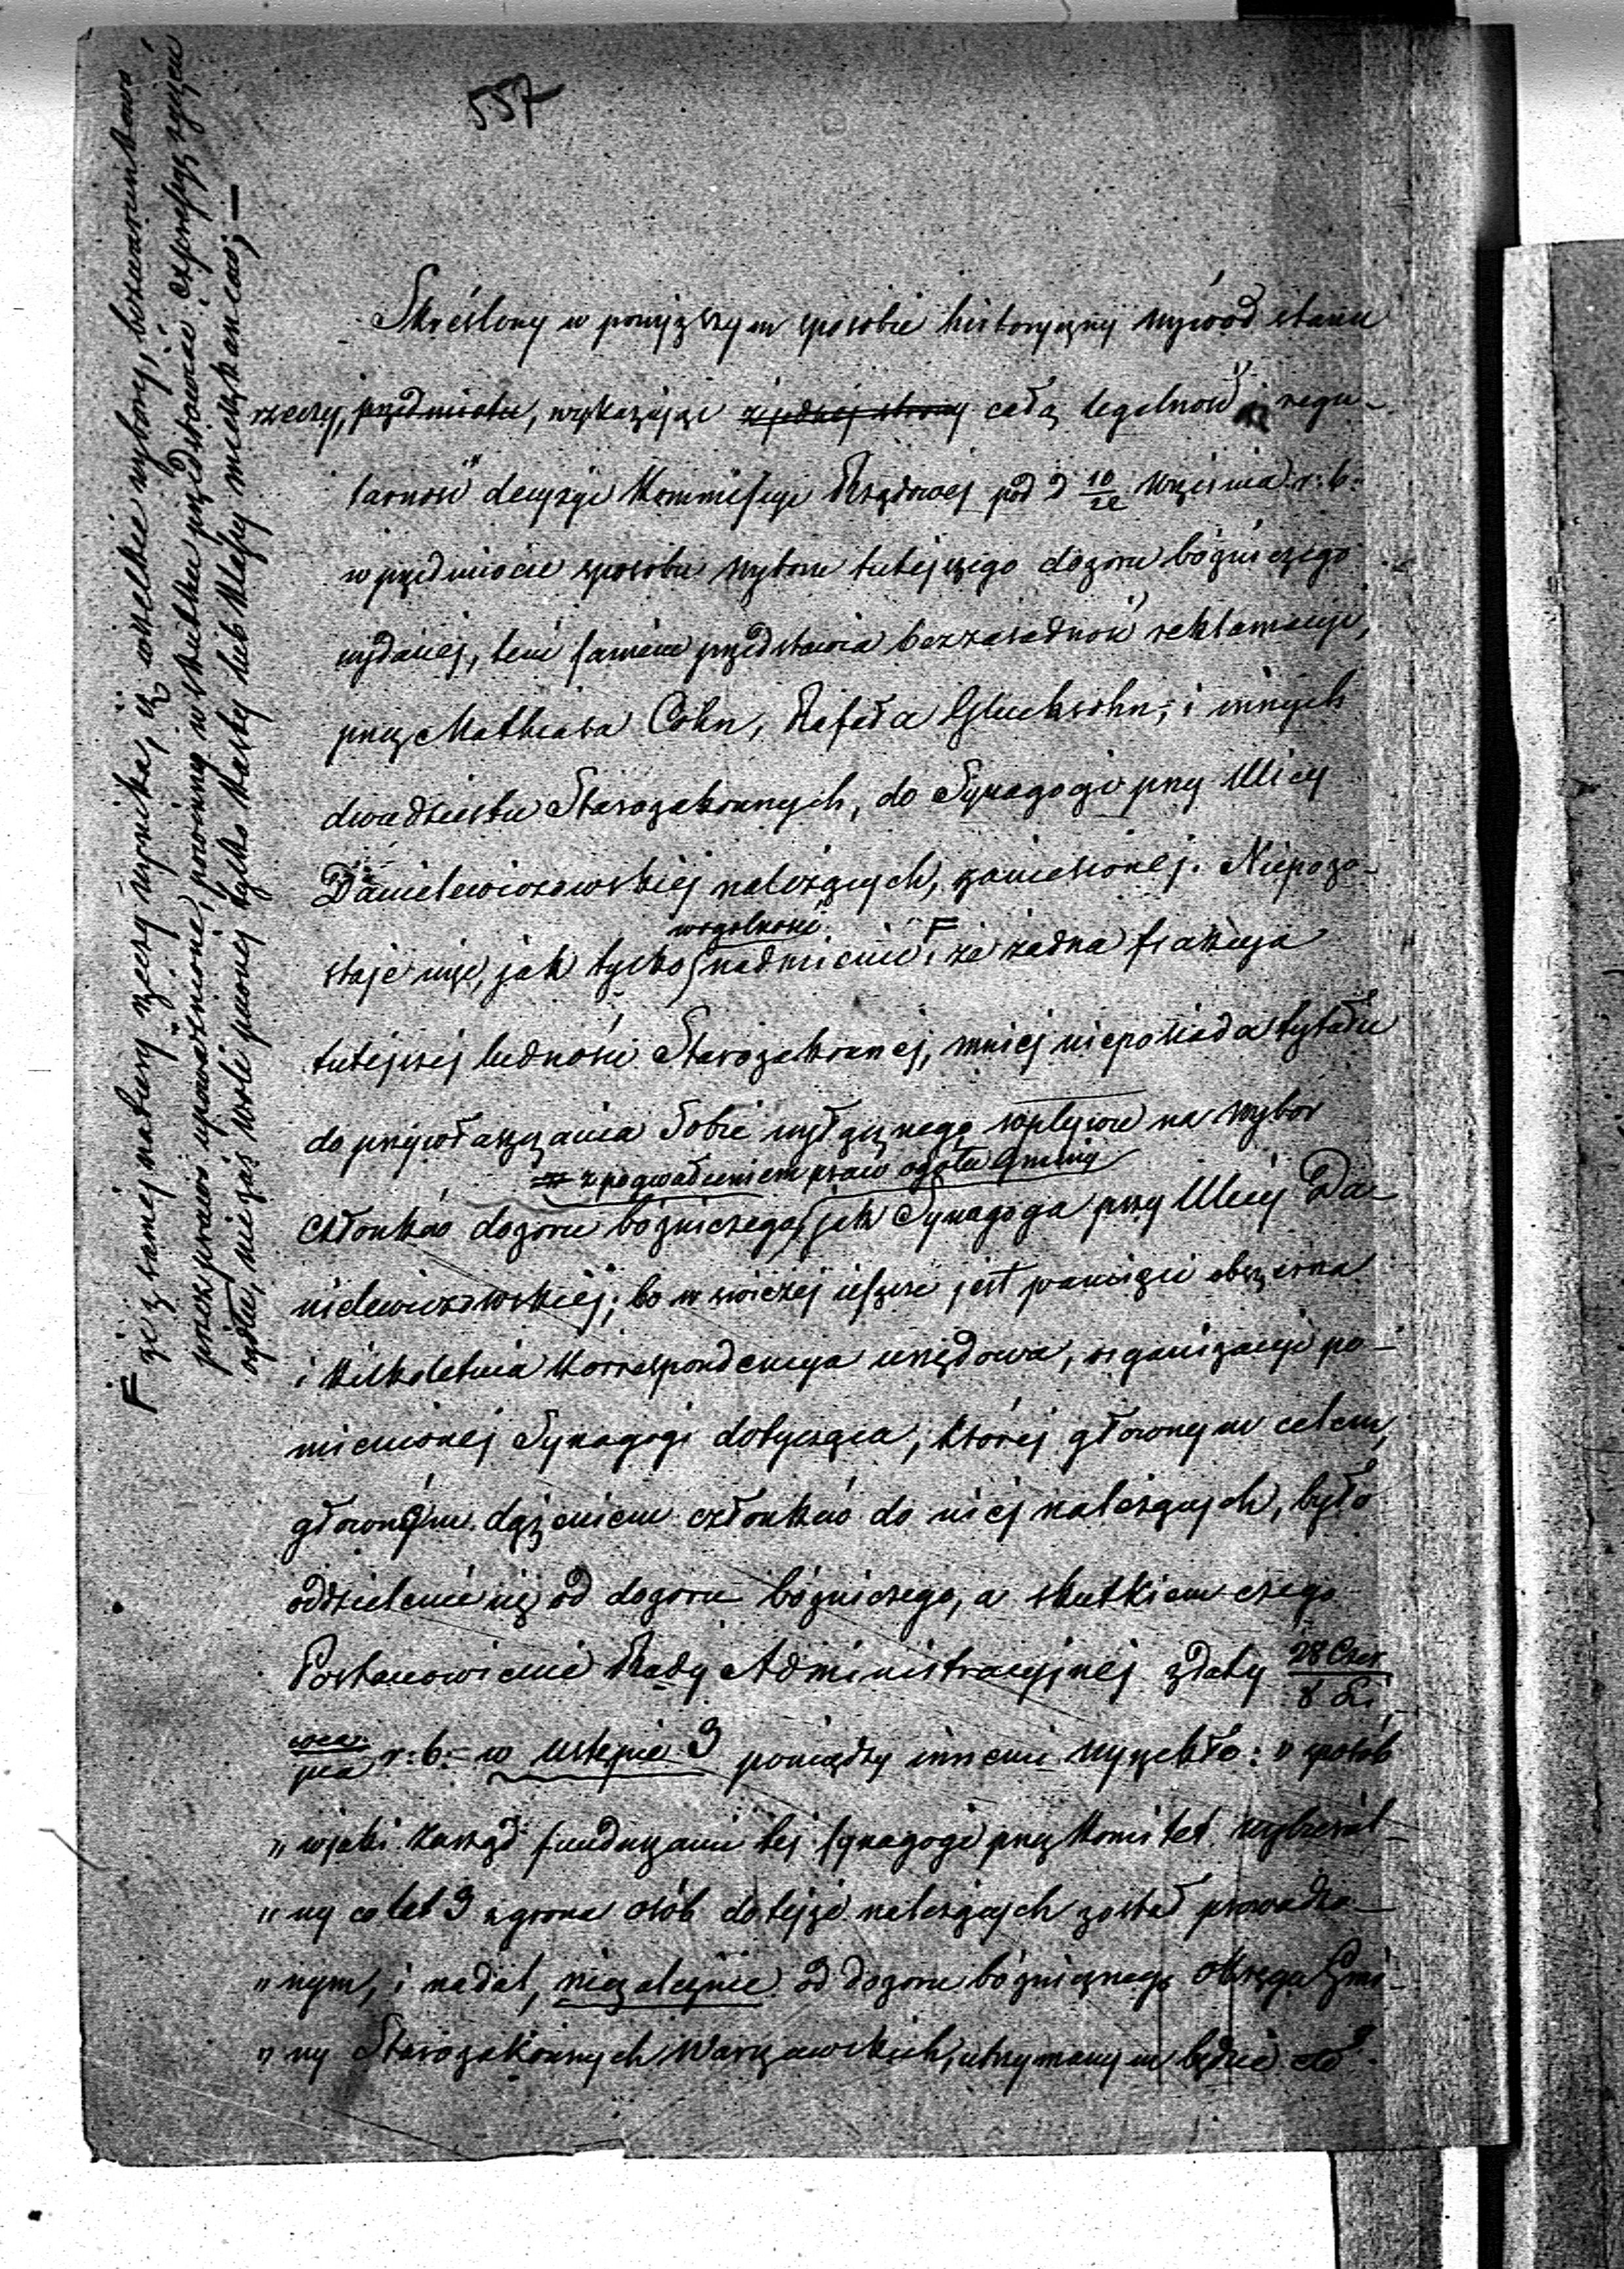 557
Skreślony w powyższym sposobie historyczny wywód stanu
rzeczy, przedmiotu, wykazując z jednej strony całą legalność i regu-
larność decyzyi Kommissyi Rządowej pod d 10/22 Września r: b:
w przedmiocie sposobu wyboru tutejszego dozoru bóżniczego
wydanej, tém samém przedstawia bezzasadność reklamacyi,
przez Mathiasa Cohn, Rafała Glücksohn, i innych
dwudziestu Starozakonnych, do Synagogi przy Ulicy
Danielewiczowskiej należących, zaniesionej. Niepozo-
wogólności F
staje więc, jak tylko nadmienić: że żadna frakcya
tutejszej ludności Starozakonnej, mniej nieposiada tytułu
do przywłaszczania Sobie wyłącznego wpływu na wybór
z pogwałceniem praw ogółu Gminy
członków dozoru bóżniczego, jak Synagoga przy Ulicy Da-
nielewiczowskiej; bo w świeżej jeszcze jest pamięci obszerna
i kilkoletnia korrespondencya urzędowa, organizacyi po-
mienionej Synagogi dotycząca, której głównym celem,
głównym dążeniem członków do niej należących, było
oddzielenie się od dozoru bóżniczego, a skutkiem czego
Postanowienie Rady Administracyjnej z daty 28 Czer/8 Li
wca/pca r: b: w ustępie 3 pomiędzy innemi wyrzekło: „sposób
„w jaki zarząd funduszami tej synagogi przez Komitet wybieral-
„ny co lat 3 z grona osób do tejże należących został prowadzo-
„nym, i nadal, niezależnie od dozoru bóżnicznego Okręgu Gmi-
„ny Starozakonnych Warszawskich, utrzymanym będzie
F że z samej natury rzeczy wynika, iż wszelkie wybory, bezwarunkowo
przez prawo upoważnione, powinny w skutku przedstawiać expressyą życzeń
ogółu, nie zaś woli pewnej tylko kasty lub klassy mieszkańców; —